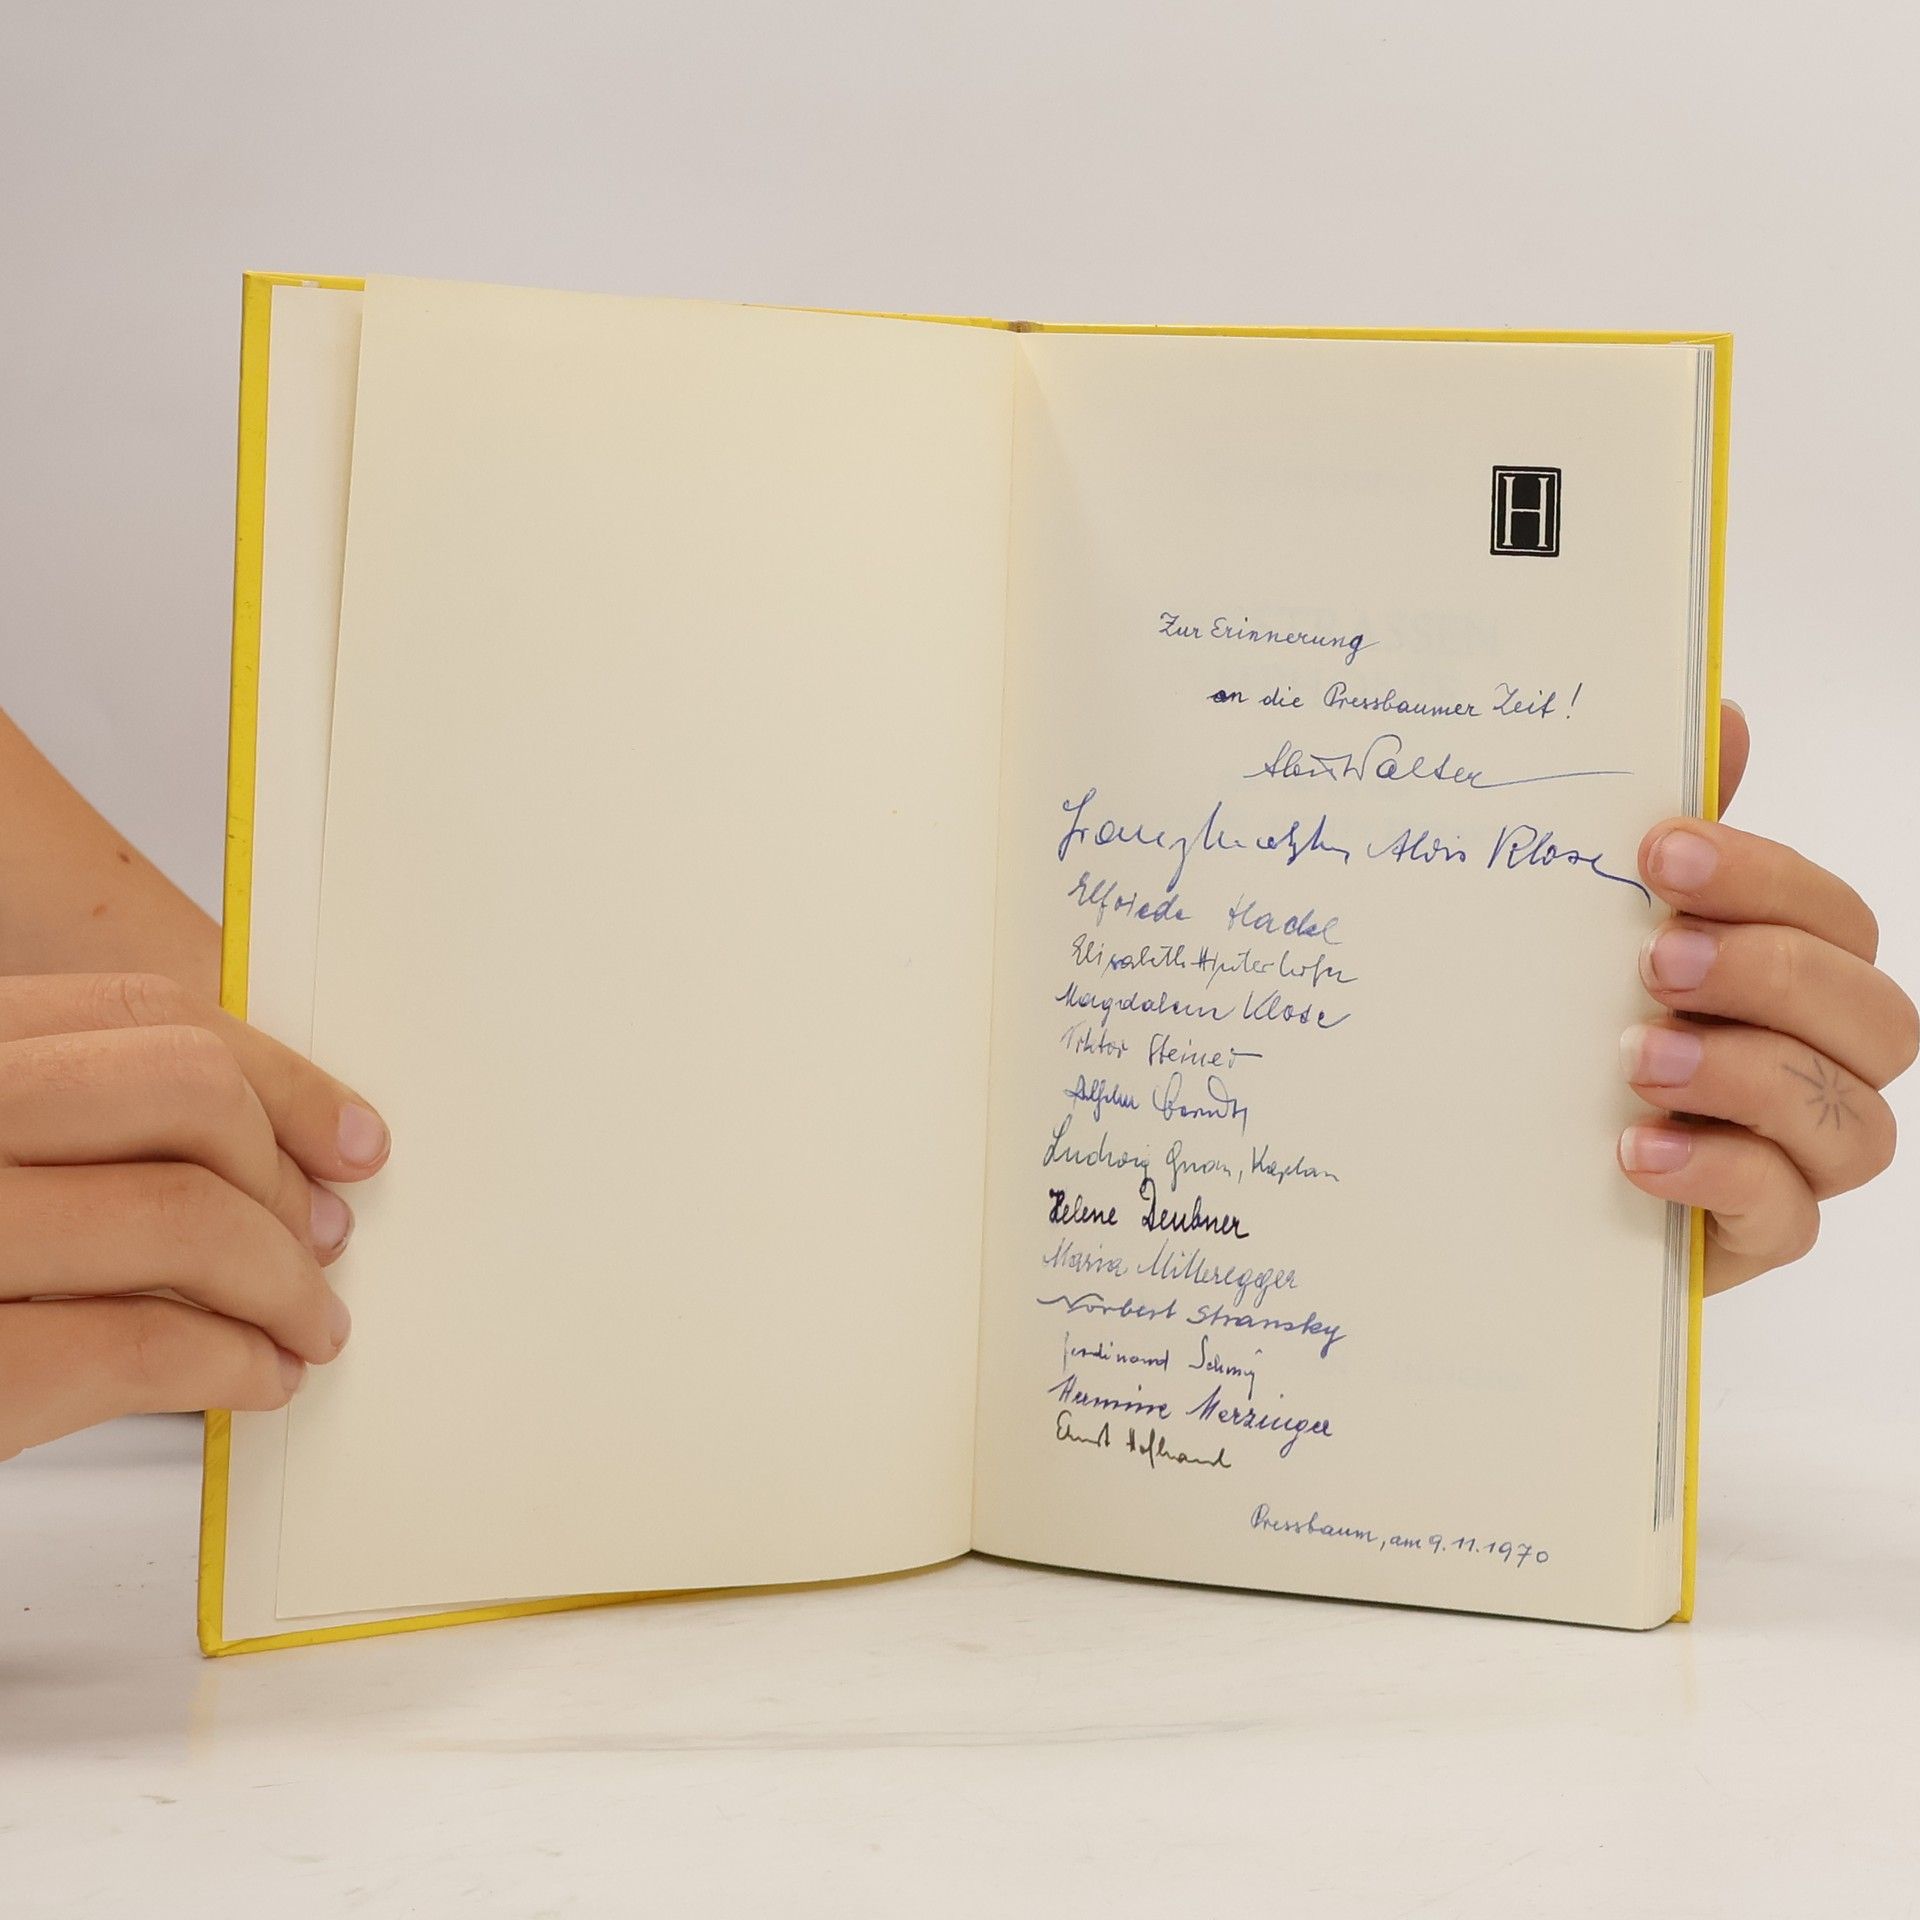 H
Zur Erinnerung
an die Pressbaumer Zeit!
Alois Walter
Franz Alois Klose
Elfriede Hackl
Elisabeth Hinterhofer
Magdalena Klose
Viktor Steiner
Ludwig, Kaplan
Helene Deubner
Maria Mitteregger
Norbert Stransky
Ferdinand
Hermine Merzinger
Ernst
Pressbaum, am 9.11.1970